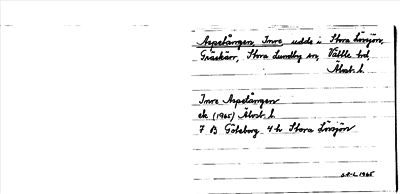 Aspetången, Inre udde i Stora Lövsjön,
Gräskärr, Stora Lundby sn, Vättle hd,
Älvsb. l.
Inre Aspetången
ek (1965) Älvsb. l.
7 B Göteborg 4 h Stora Lövsjön
1965